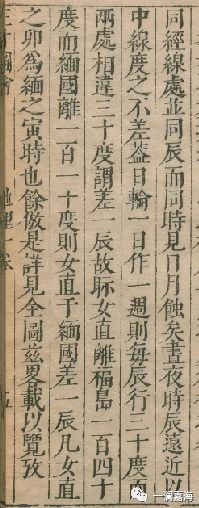 同經線處並同辰而同時見日月蝕矣晝夜時辰遠近以
中線度之不差葢日輪一日作一週則每辰行三十度而
兩處相違三十度謂差一辰故眎女直離福島一百四十
度而緬國離一百一十度則女直于緬國差一辰凡女直
之卯為緬之寅時也餘倣是詳見全圖茲畧載以覽攷
三才圖會
地理一卷
一澜嘉海